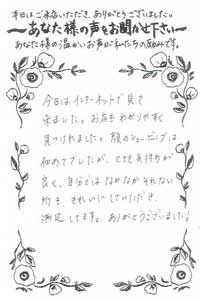 本日はご来店いただき、ありがとうございました。
～あなた様の声をお聞かせ下さい～
あなた様の温かいお声が私たちの励みです。
今日はインターネットで見て
来ました。お店もわかりやすく
見つけれました。顔のシェービングは
初めてでしたが、とても気持りが
良く、自分ではなかなかそれない
所も きれいにしていただき、
満足してます。ありがとうございました!